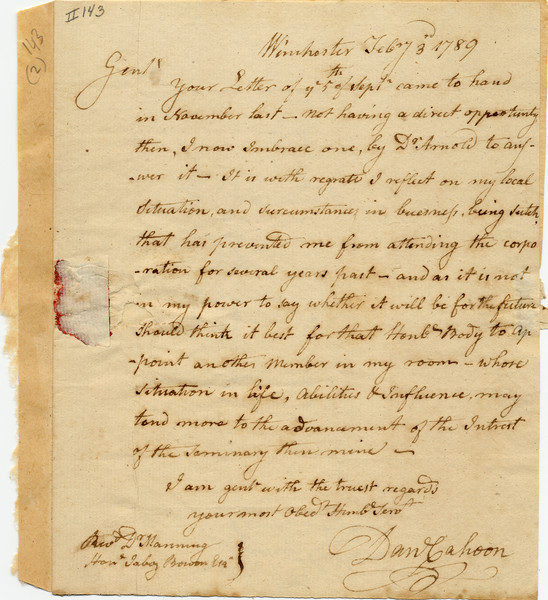 II 143
143
(2)
Winchester Feby 3d 1789
Gent
Your Letter of ye 5th of Sept came to hand
in November last — not having a direct opportunity
then, I now Imbrace one, by Dr Arnold to ans-
wer it — It is with regrate I reflect on my local
Situation, and Surcumstances in buesness, being Sutch,
that has prevented me from attending the corpo
-ration for several years past — and as it is not
in my power to say whether it will be for the future
Should think it best for that Honbe Body to ap-
-point another Member in my room — whose
Situation in life, Abilities & Influence, may
tend more to the advancement of the Intrest
of the Seminary then mine —
I am gent with the truest regards
your most Obedt Humbe Servt
Dan Cahoon
Revd Dr Manning
Honl Jabez Bowen Esqr